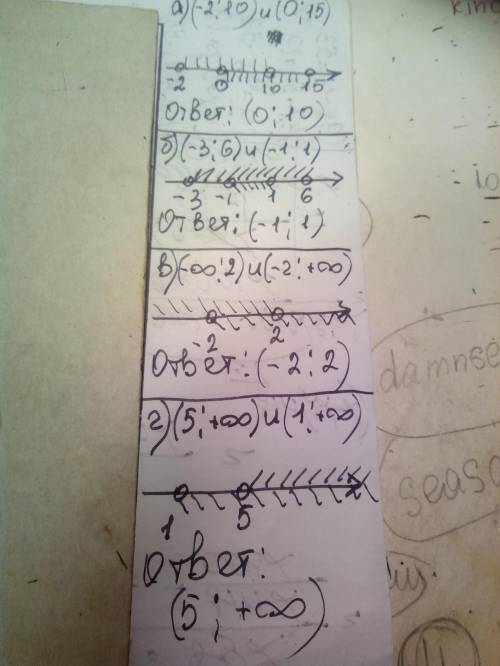 а)(-2;10)и(0;15)
-2 0 10 15
Ответ: (0;10)
б)(-3;6)и(-1;1)
-3 -1 1 6
Ответ: (-1;1)
в)(-∞;2)и(-2;+∞)
-2 2
Ответ: (-2;2)
г)(5;+∞)и(1;+∞)
1 5
Ответ:
(5;+∞)
damnse
seaso